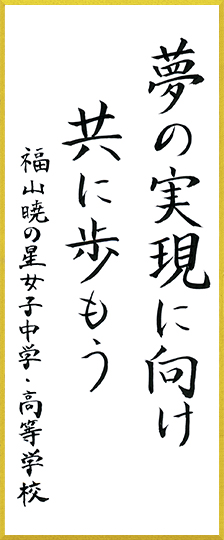 夢の実現に向け
共に歩もう
福山暁の星女子中学・高等学校